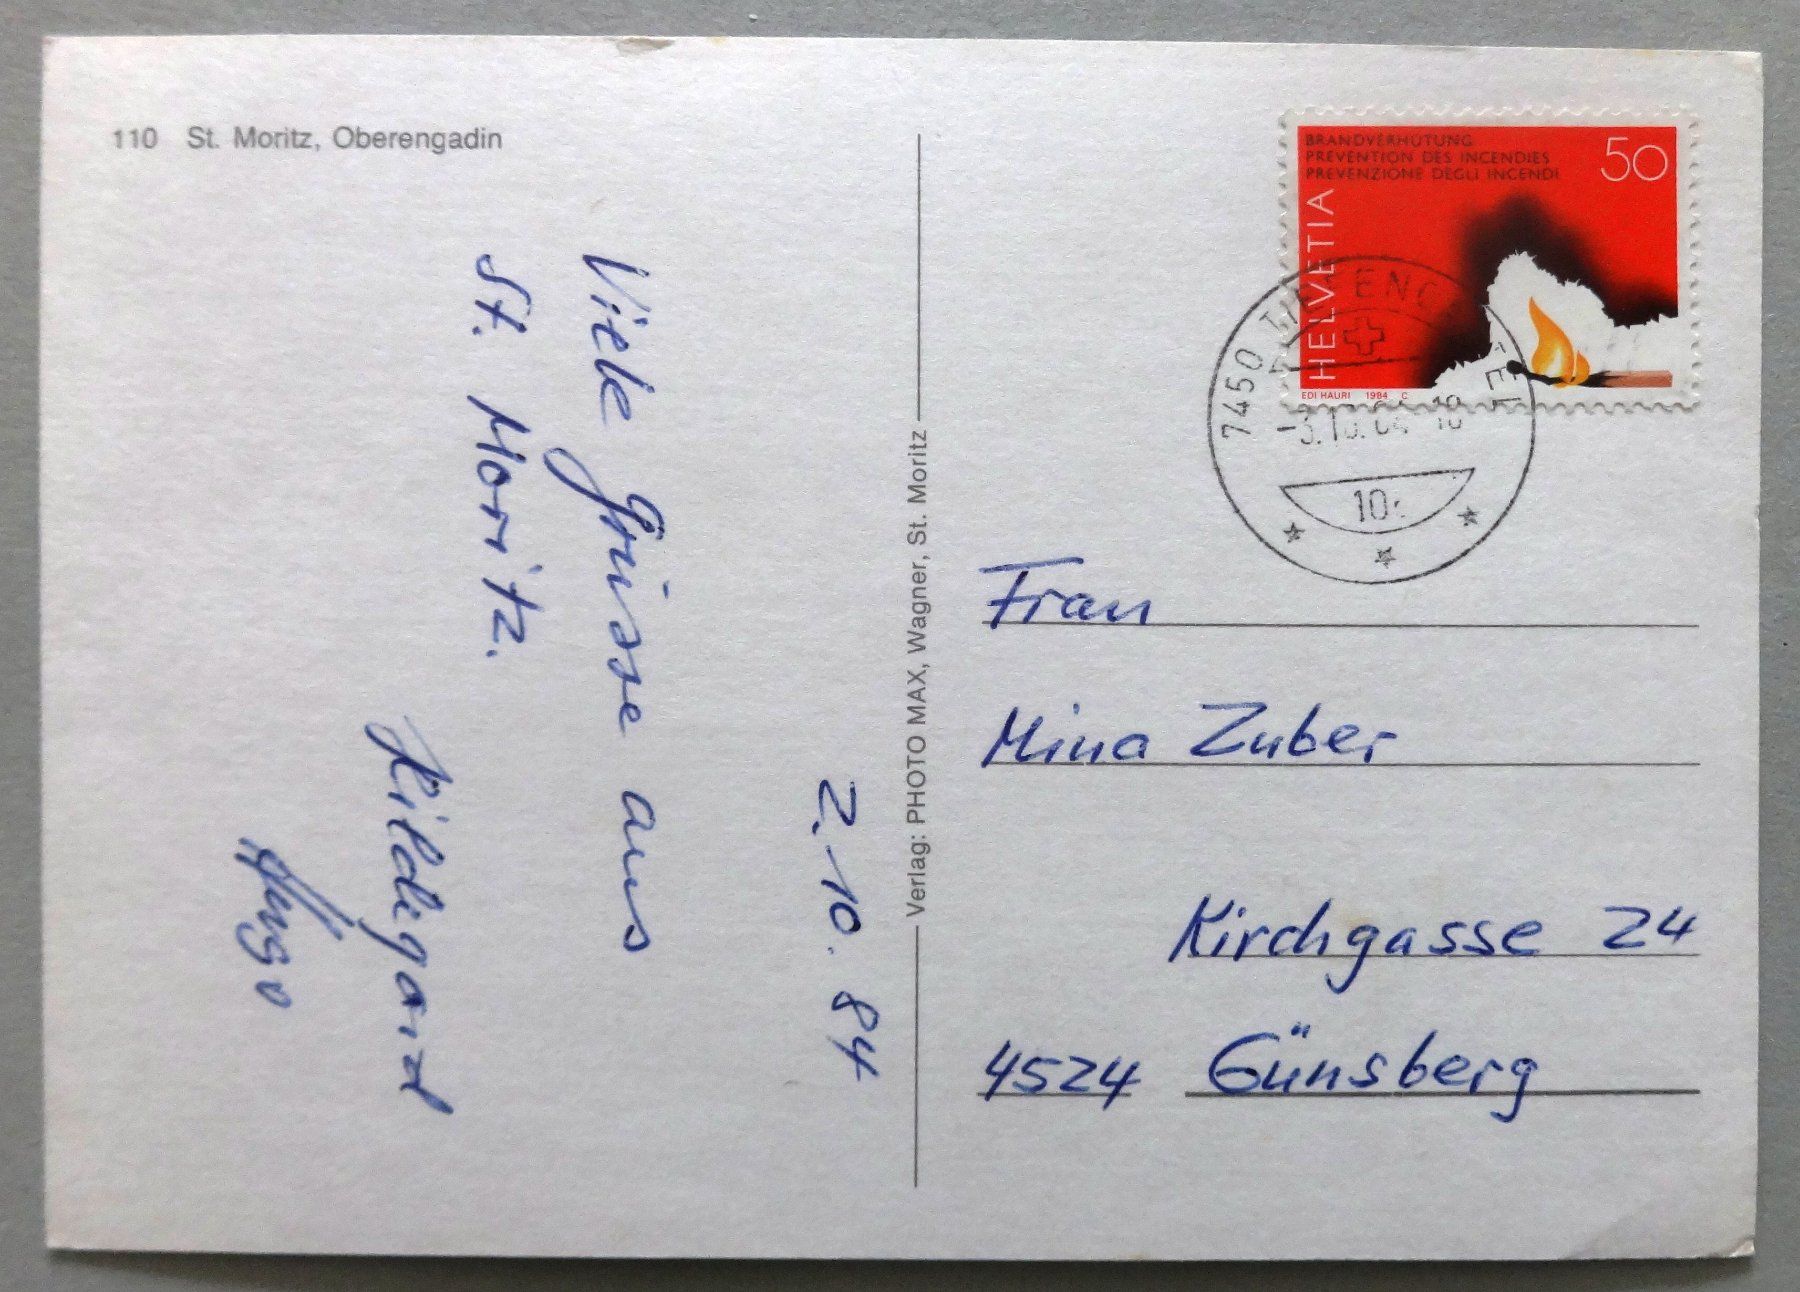 110 St. Moritz, Oberengadin
2.10.84
Viele Grüsse aus
St. Moritz.
Hildegard
Hugo
Verlag: PHOTO MAX, Wagner, St. Moritz
BRANDVERHÜTUNG
PREVENTION DES INCENDIES
PREVENZIONE DEGLI INCENDI
50
HELVETIA
EDI HAURI 1984 C
7450
-3.10.84 18
Frau
Mina Zuber
Kirchgasse 24
4524 Günsberg